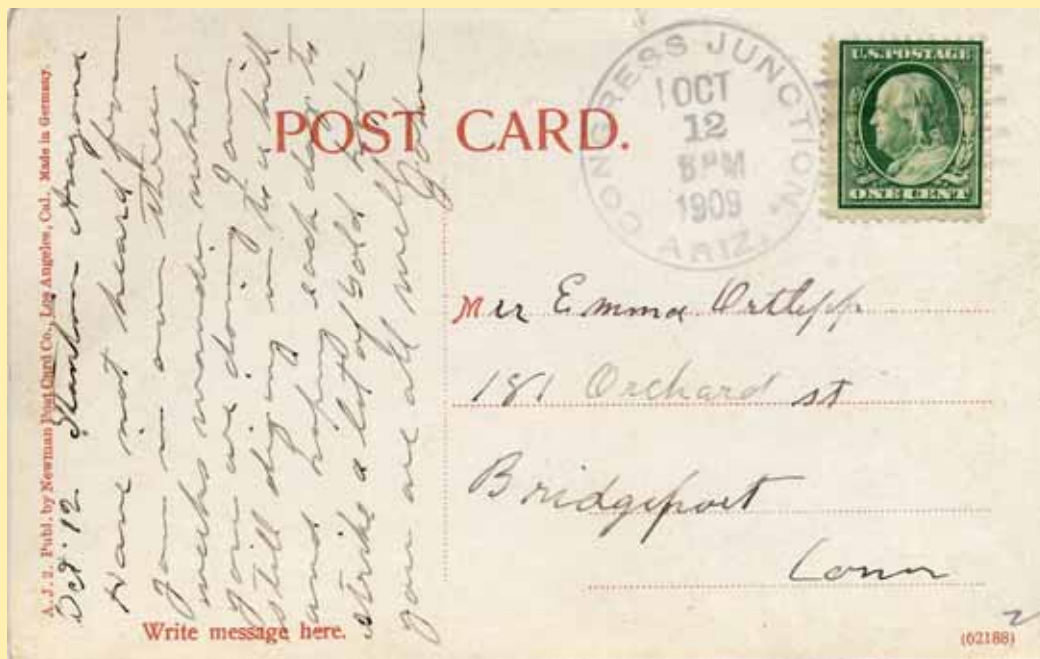 A. J. 2. Publ. by Newman Post Card Co., Los Angeles, Cal. Made in Germany.
Oct. 12 Stanton Arizona
Have not heard from
you in over three
weeks wonder what
you are doing I am
still diging in to a hill
and hoping each day to
strike a lot of gold hope
you are all well
John
Write message here.
POST CARD.
CONGRESS JUNCTION,
OCT
12
5PM
1909
ARIZ.
U.S. POSTAGE
ONE CENT
Emma Ortlepp
181 Orchard st
Bridgeport
Conn
(62188)